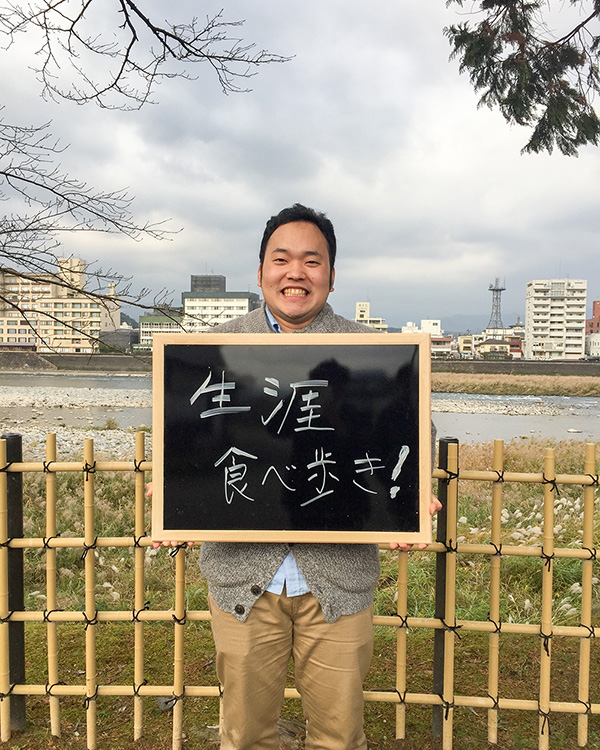 生涯
食べ歩き!